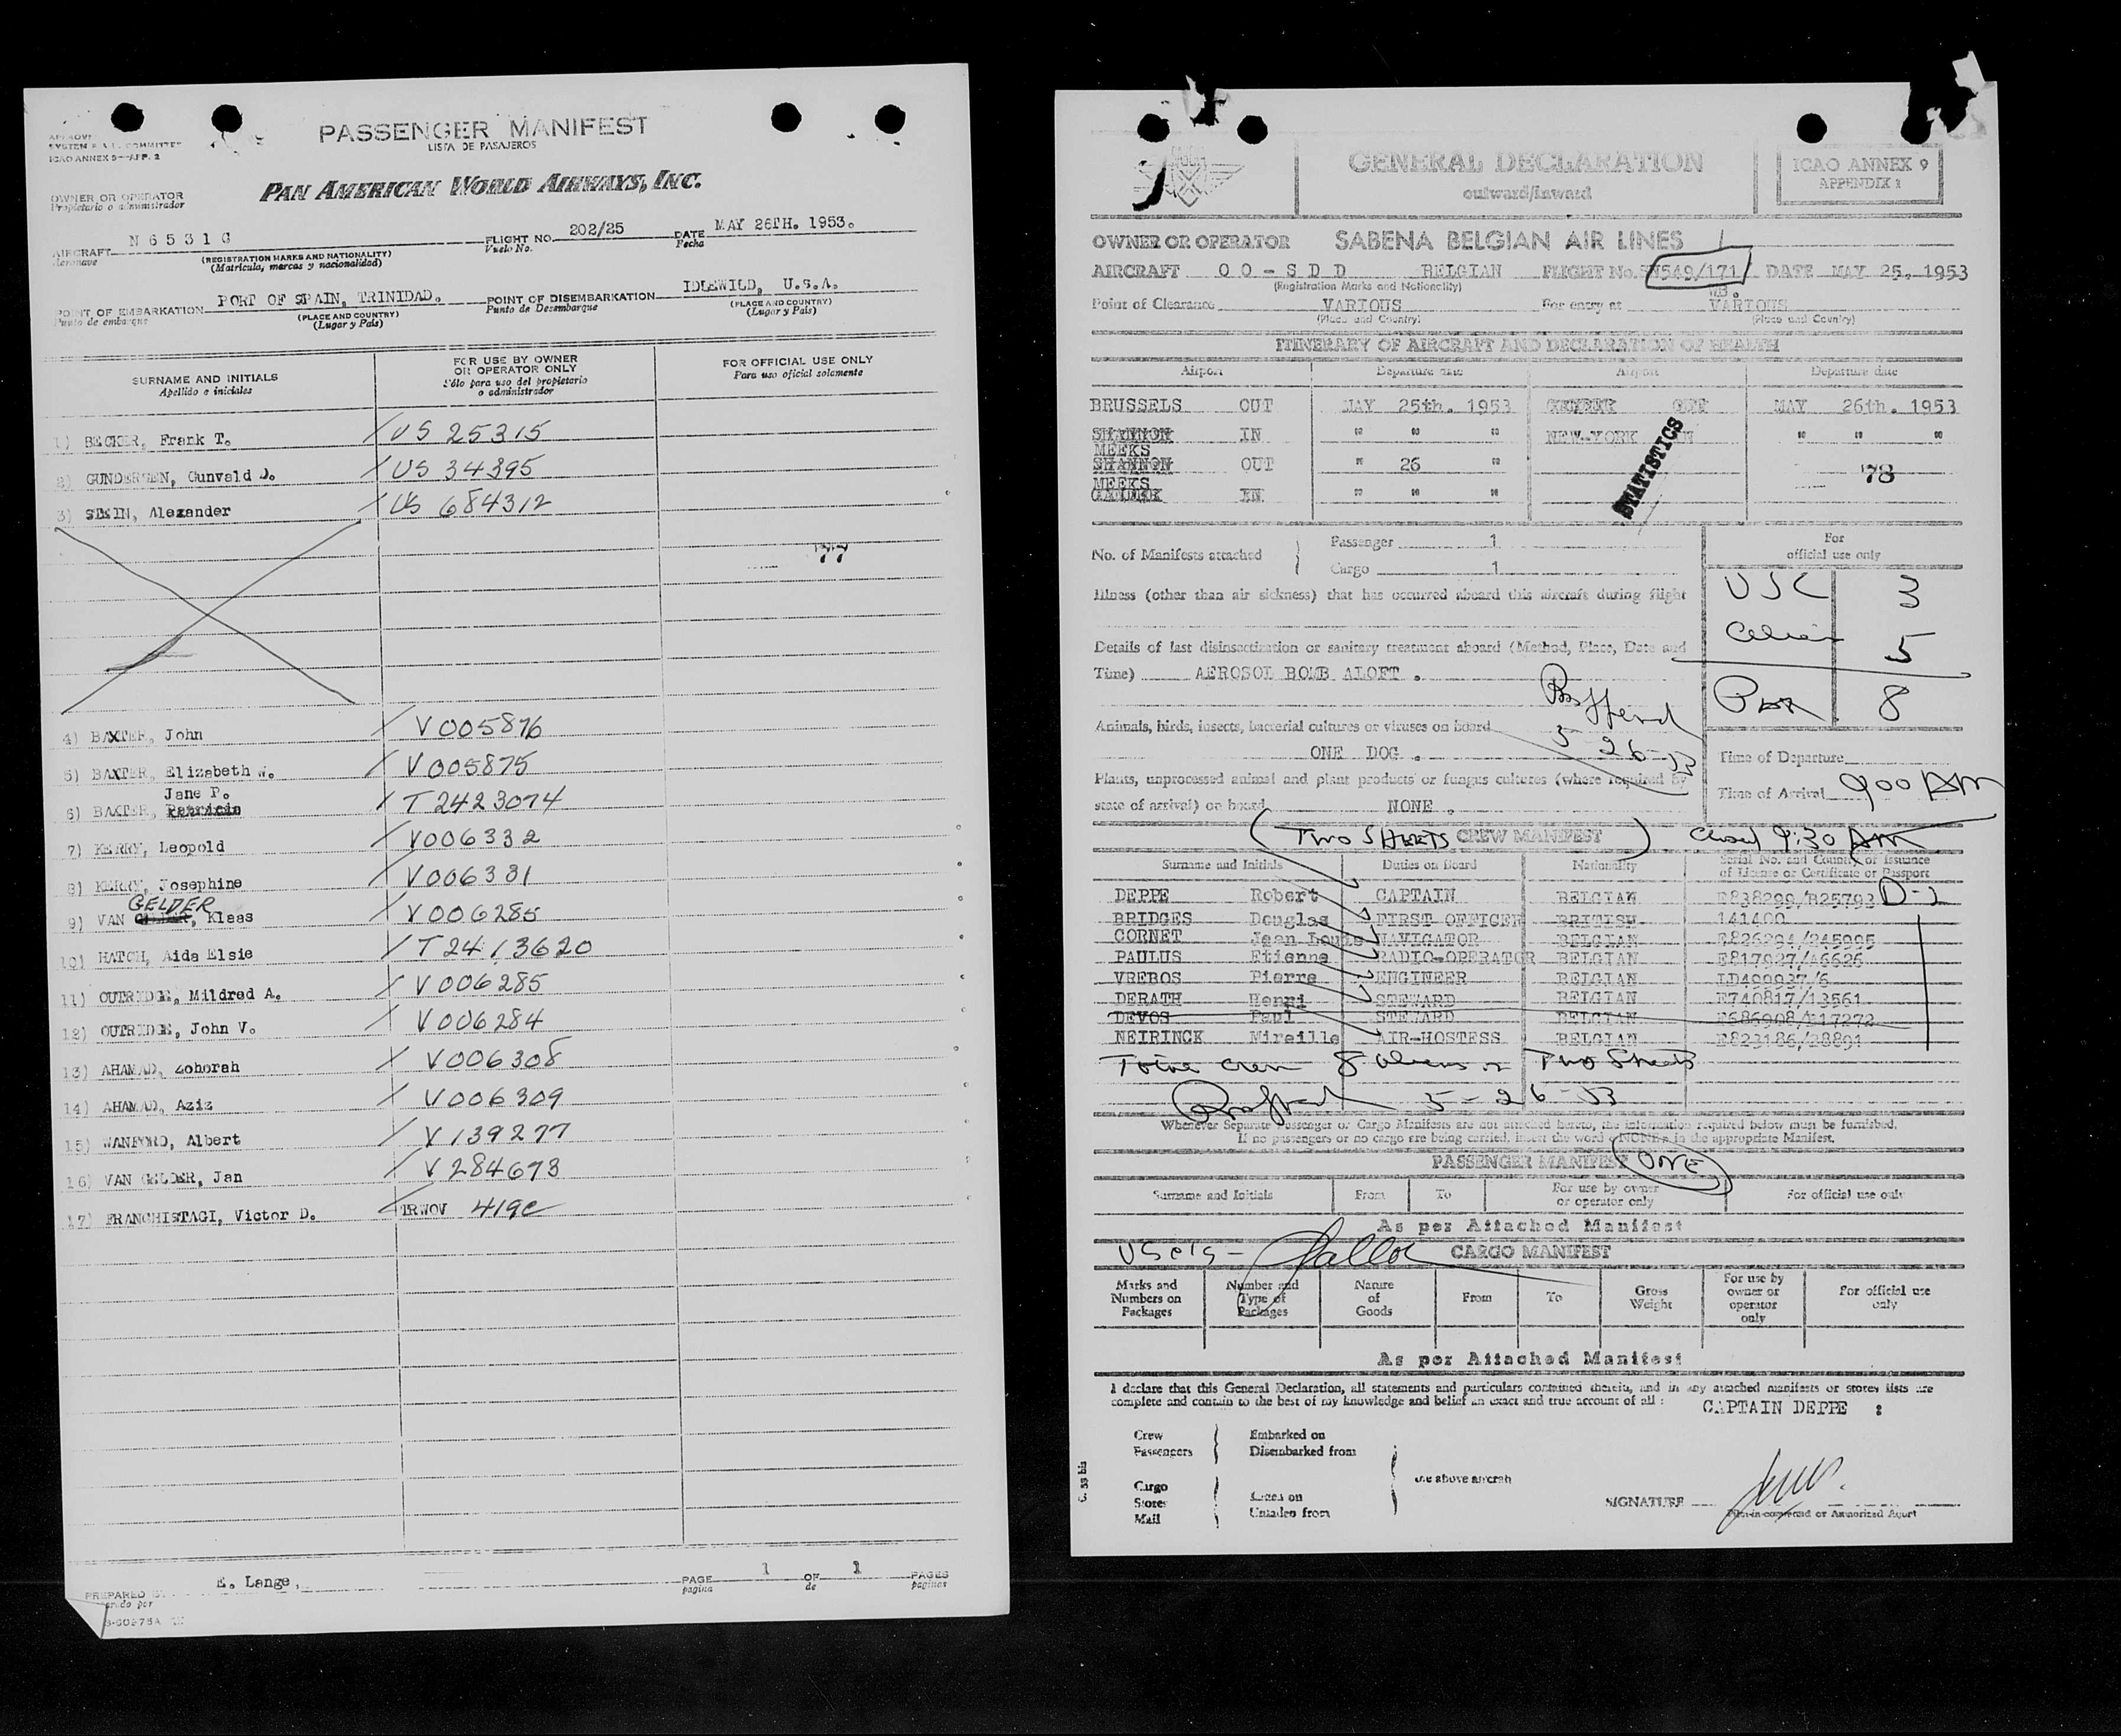 PASSENGER MANIFEST
LISTA DE PASAJEROS
SYSTEM COMMITTEE
ICAO ANNEX 9—APP. 2
PAN AMERICAN WORLD AIRWAYS, INC.
OWNER OR OPERATOR
Propietario o administrador
AIRCRAFT N6531C FLIGHT NO. 202/25 DATE MAY 26TH. 1953.
Aeronave (REGISTRATION MARKS AND NATIONALITY) Vuelo No. Fecha
(Matricula, marcas y nacionalidad)
POINT OF EMBARKATION PORT OF SPAIN, TRINIDAD. POINT OF DISEMBARKATION IDLEWILD, U.S.A.
Punto de embarque (PLACE AND COUNTRY) Punto de Desembarque (PLACE AND COUNTRY)
(Lugar y País) (Lugar y País)
SURNAME AND INITIALS
Apellido e iniciales
FOR USE BY OWNER
OR OPERATOR ONLY
Sólo para uso del propietario
o administrador
FOR OFFICIAL USE ONLY
Para uso oficial solamente
1) BECKER, Frank T. / US 25315
2) GUNDERSEN, Gunvald D. / US 34395
3) STEIN, Alexander / US 684312
77
4) BAXTER, John / V005876
5) BAXTER, Elizabeth W. / V005875
Jane P.
6) BAXTER, Patricia / T2423074
7) KERRY, Leopold / V006332
8) KERRY, Josephine / V006331
GELDER
9) VAN , Klaas / V006285
10) HATCH, Aida Elsie / T2413620
11) OUTRIDGE, Mildred A. / V006285
12) OUTRIDGE, John V. / V006284
13) AHAMAD, Zohorah / V006308
14) AHAMAD, Aziz / V006309
15) WANFORD, Albert / V139277
16) VAN GELDER, Jan / V284673
17) FRANCHISTAGI, Victor D. / TRWOV 419c
PREPARED BY E. Lange, PAGE 1 OF 1 PAGES
pagina de paginas
GENERAL DECLARATION
outward/inward
ICAO ANNEX 9
APPENDIX 1
OWNER OR OPERATOR SABENA BELGIAN AIR LINES
AIRCRAFT OO-SDD BELGIAN FLIGHT No. SN549/171 DATE MAY 25, 1953
(Registration Marks and Nationality)
Point of Clearance VARIOUS For entry at VARIOUS
(Place and Country) (Place and Country)
ITINERARY OF AIRCRAFT AND DECLARATION OF HEALTH
Airport Departure date Airport Departure date
BRUSSELS OUT MAY 25th. 1953 GANDER OUT MAY 26th. 1953
SHANNON IN " " " NEW-YORK IN " " "
MEEKS
SHANNON OUT " 26 " 78
MEEKS
GANDER IN " " "
STATISTICS
No. of Manifests attached Passenger 1
Cargo 1
For
official use only
Illness (other than air sickness) that has occurred aboard this aircraft during flight
USC 3
Alien 5
Details of last disinsectization or sanitary treatment aboard (Method, Place, Date and
Time) AEROSOL BOMB ALOFT .
8
Animals, birds, insects, bacterial cultures or viruses on board
5-26-53
ONE DOG .
Time of Departure
Plants, unprocessed animal and plant products or fungus cultures (where required by
state of arrival) on board NONE .
Time of Arrival 900 AM
(TWO SHEETS CREW MANIFEST ) Closed 9:30 AM
Surname and Initials Duties on Board Nationality Serial No. and Country of Issuance
of License or Certificate or Passport
DEPPE Robert CAPTAIN BELGIAN E838299/B25793 D-1
BRIDGES Douglas FIRST OFFICER BRITISH 141400
CORNET Jean Louis NAVIGATOR BELGIAN E826294/245995
PAULUS Etienne RADIO-OPERATOR BELGIAN E817927/A6626
VREBOS Pierre ENGINEER BELGIAN LD499937/6
DERATH Henri STEWARD BELGIAN E740817/13561
DEVOS Paul STEWARD BELGIAN E686908/E17272
NEIRINCK Mireille AIR-HOSTESS BELGIAN E823186/38891
Total crew 8 aliens on Two Sheets
5-26-53
Whenever Separate Passenger or Cargo Manifests are not attached hereto, the information required below must be furnished.
If no passengers or no cargo are being carried, insert the word «NONE» in the appropriate Manifest.
PASSENGER MANIFEST ONE
Surname and Initials From To For use by owner
or operator only For official use only
As per Attached Manifest
CARGO MANIFEST
Marks and
Numbers on
Packages
Number and
Type of
Packages
Nature
of
Goods
From To
Gross
Weight
For use by
owner or
operator
only
For official use
only
As per Attached Manifest
I declare that this General Declaration, all statements and particulars contained therein, and in any attached manifests or stores lists are
complete and contain to the best of my knowledge and belief an exact and true account of all :
CAPTAIN DEPPE :
Crew Embarked on
Passengers Disembarked from
the above aircraft
Cargo
Stores Laden on
Mail Unladen from
SIGNATURE
Pilot-in-command or Authorized Agent
C. 55 bis